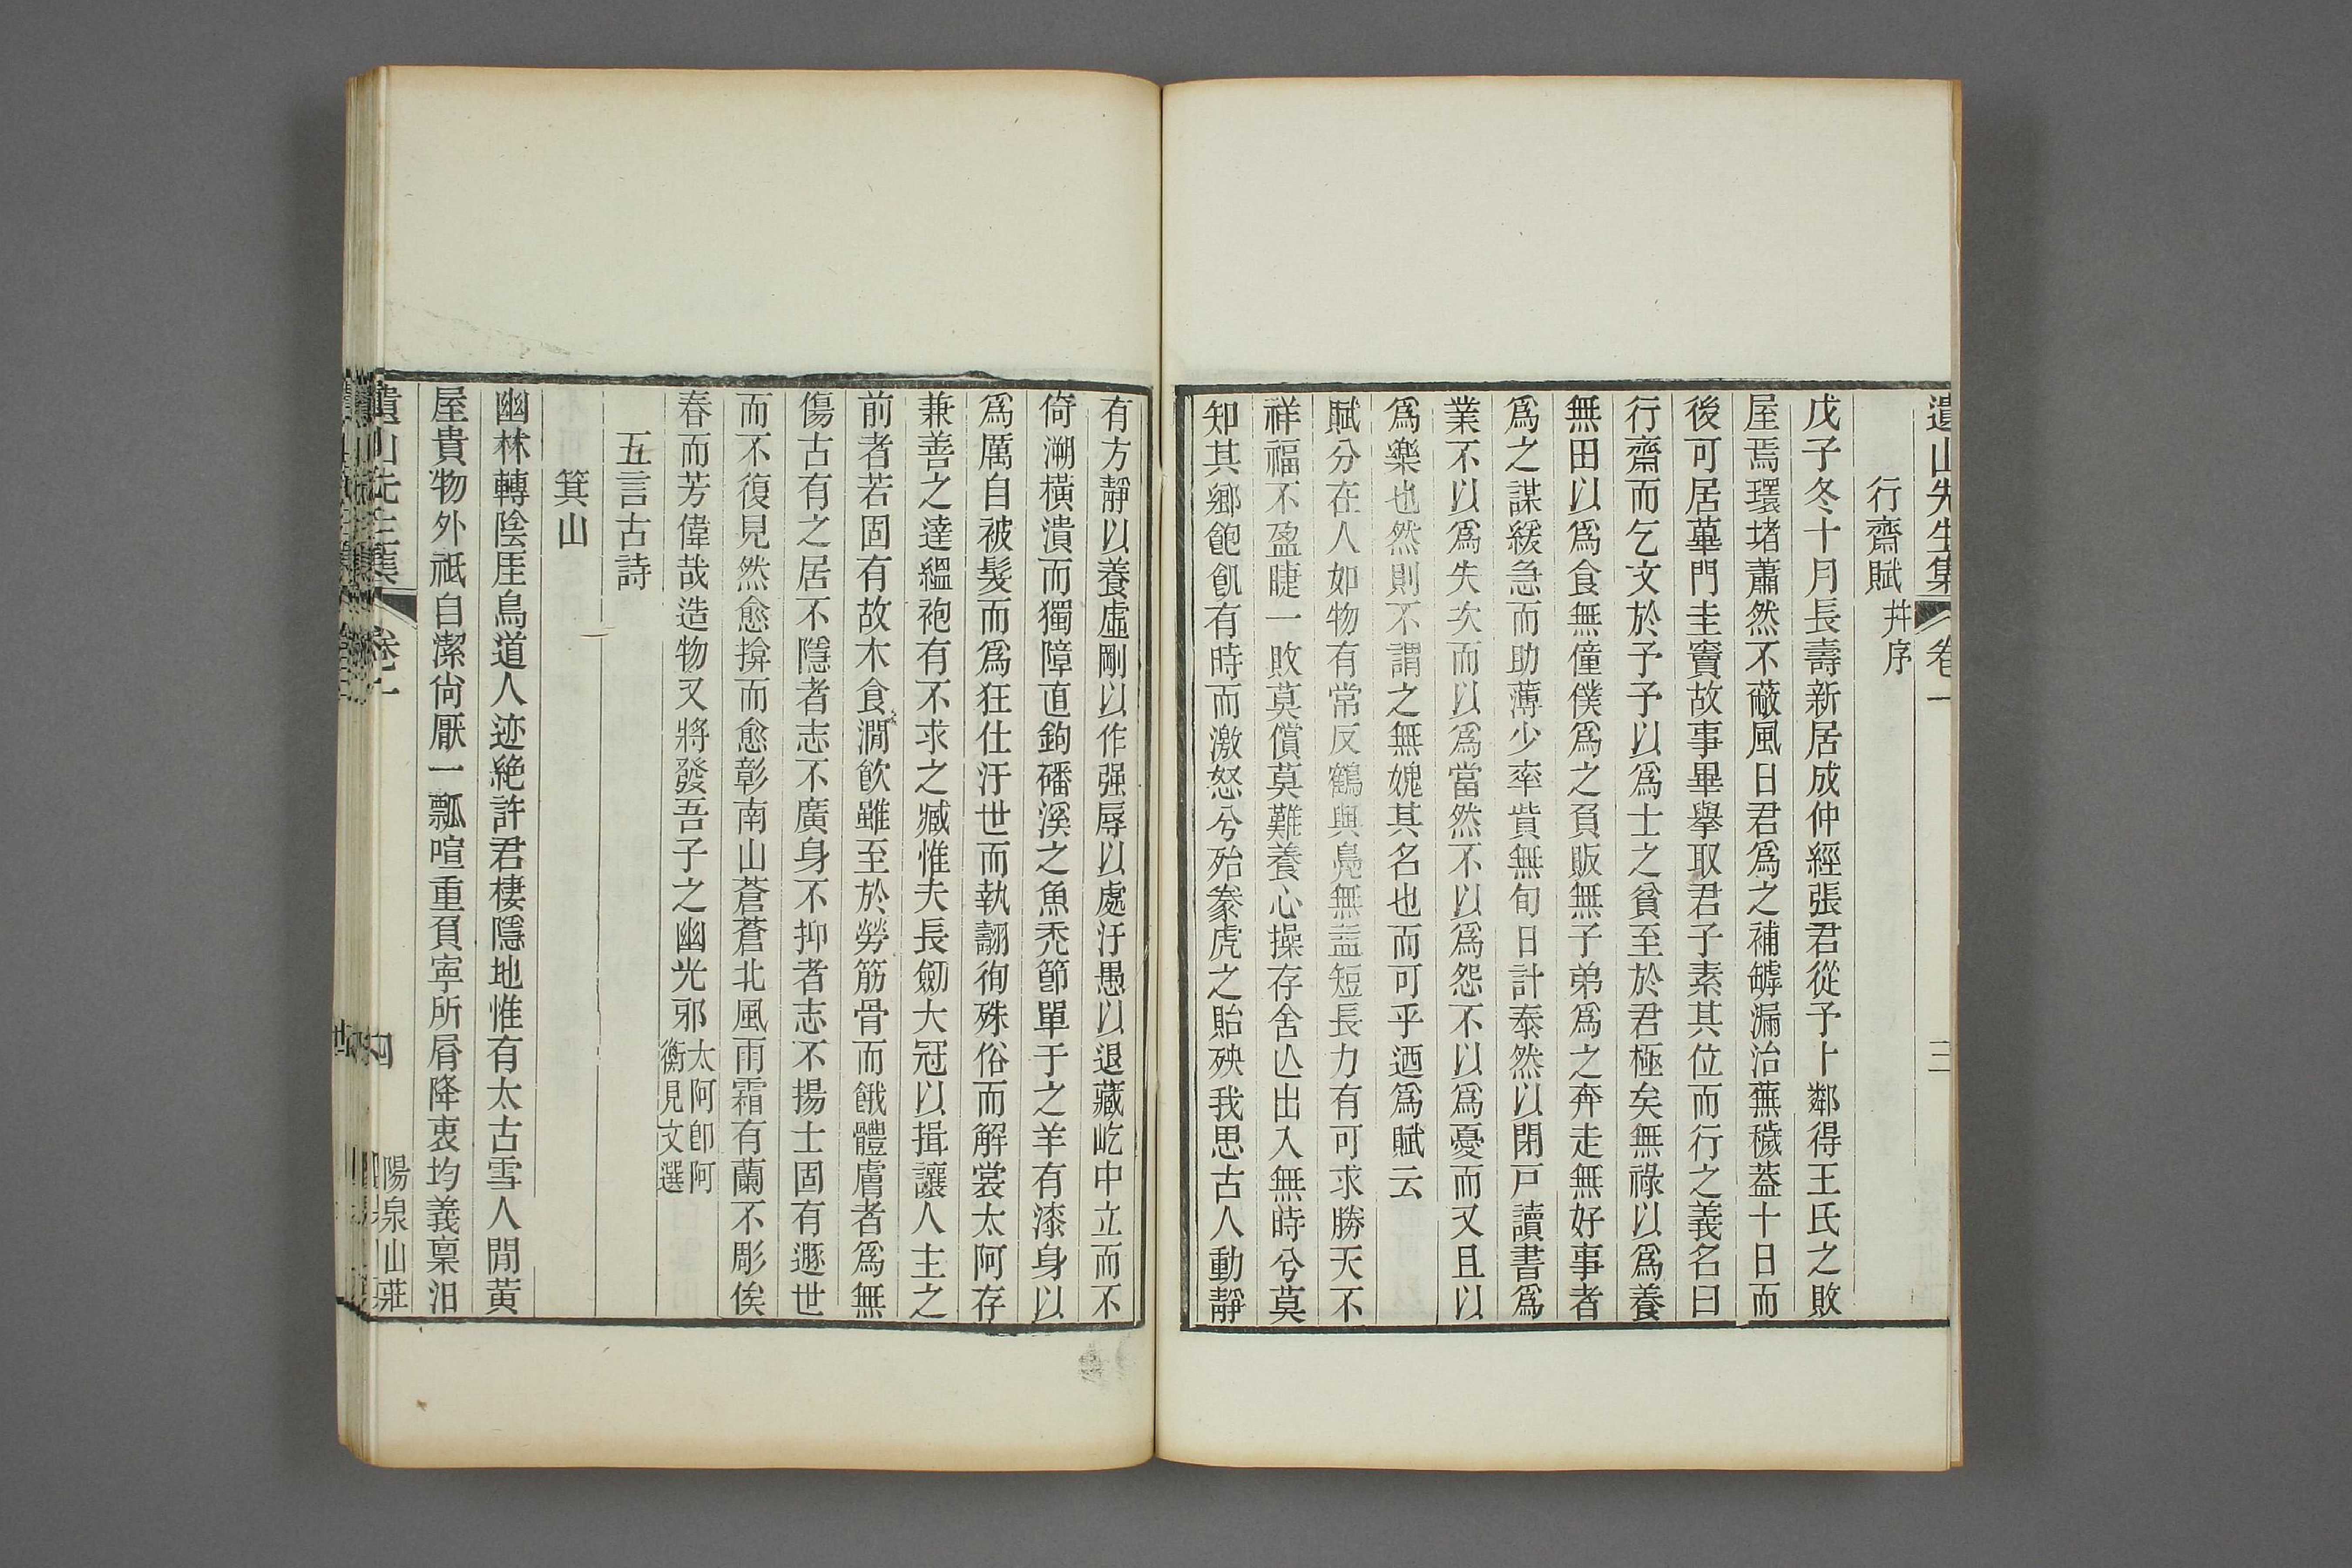 遺山先生集 卷一 三
行齋賦 幷序
戊子冬十月長壽新居成仲經張君從予卜鄰得王氏之敗
屋焉環堵蕭然不蔽風日君爲之補罅漏治蕪穢葢十日而
後可居蓽門圭竇故事畢擧取君子素其位而行之義名曰
行齋而乞文於予予以爲士之貧至於君極矣無祿以爲養
無田以爲食無僮僕爲之負販無子弟爲之奔走無好事者
爲之謀緩急而助薄少率貲無旬日計泰然以閉戸讀書爲
業不以爲失次而以爲當然不以爲怨不以爲憂而又且以
爲樂也然則不謂之無媿其名也而可乎迺爲賦云
賦分在人如物有常反鶴與鳧無益短長力有可求勝天不
祥福不盈睫一敗莫償莫難養心操存舍亾出入無時兮莫
知其鄉飽飢有時而激怒兮殆豢虎之貽殃我思古人動靜
有方靜以養虛剛以作强辱以處汙愚以退藏屹中立而不
倚溯橫潰而獨障直鉤磻溪之魚禿節單于之羊有漆身以
爲厲自被髮而爲狂仕汙世而執翿徇殊俗而解裳太阿存
兼善之達縕袍有不求之臧惟夫長劒大冠以揖讓人主之
前者若固有故木食澗飮雖至於勞筋骨而餓體膚者爲無
傷古有之居不隱者志不廣身不抑者志不揚士固有遯世
而不復見然愈揜而愈彰南山蒼蒼北風雨霜有蘭不彫俟
春而芳偉哉造物又將發吾子之幽光邪 太阿卽阿
衡見文選
五言古詩
箕山
幽林轉陰厓鳥道人迹絕許君棲隱地惟有太古雪人閒黃
屋貴物外祇自潔尙厭一瓢喧重負寧所屑降衷均義稟汨
遺山先生集 卷一 四
陽泉山莊